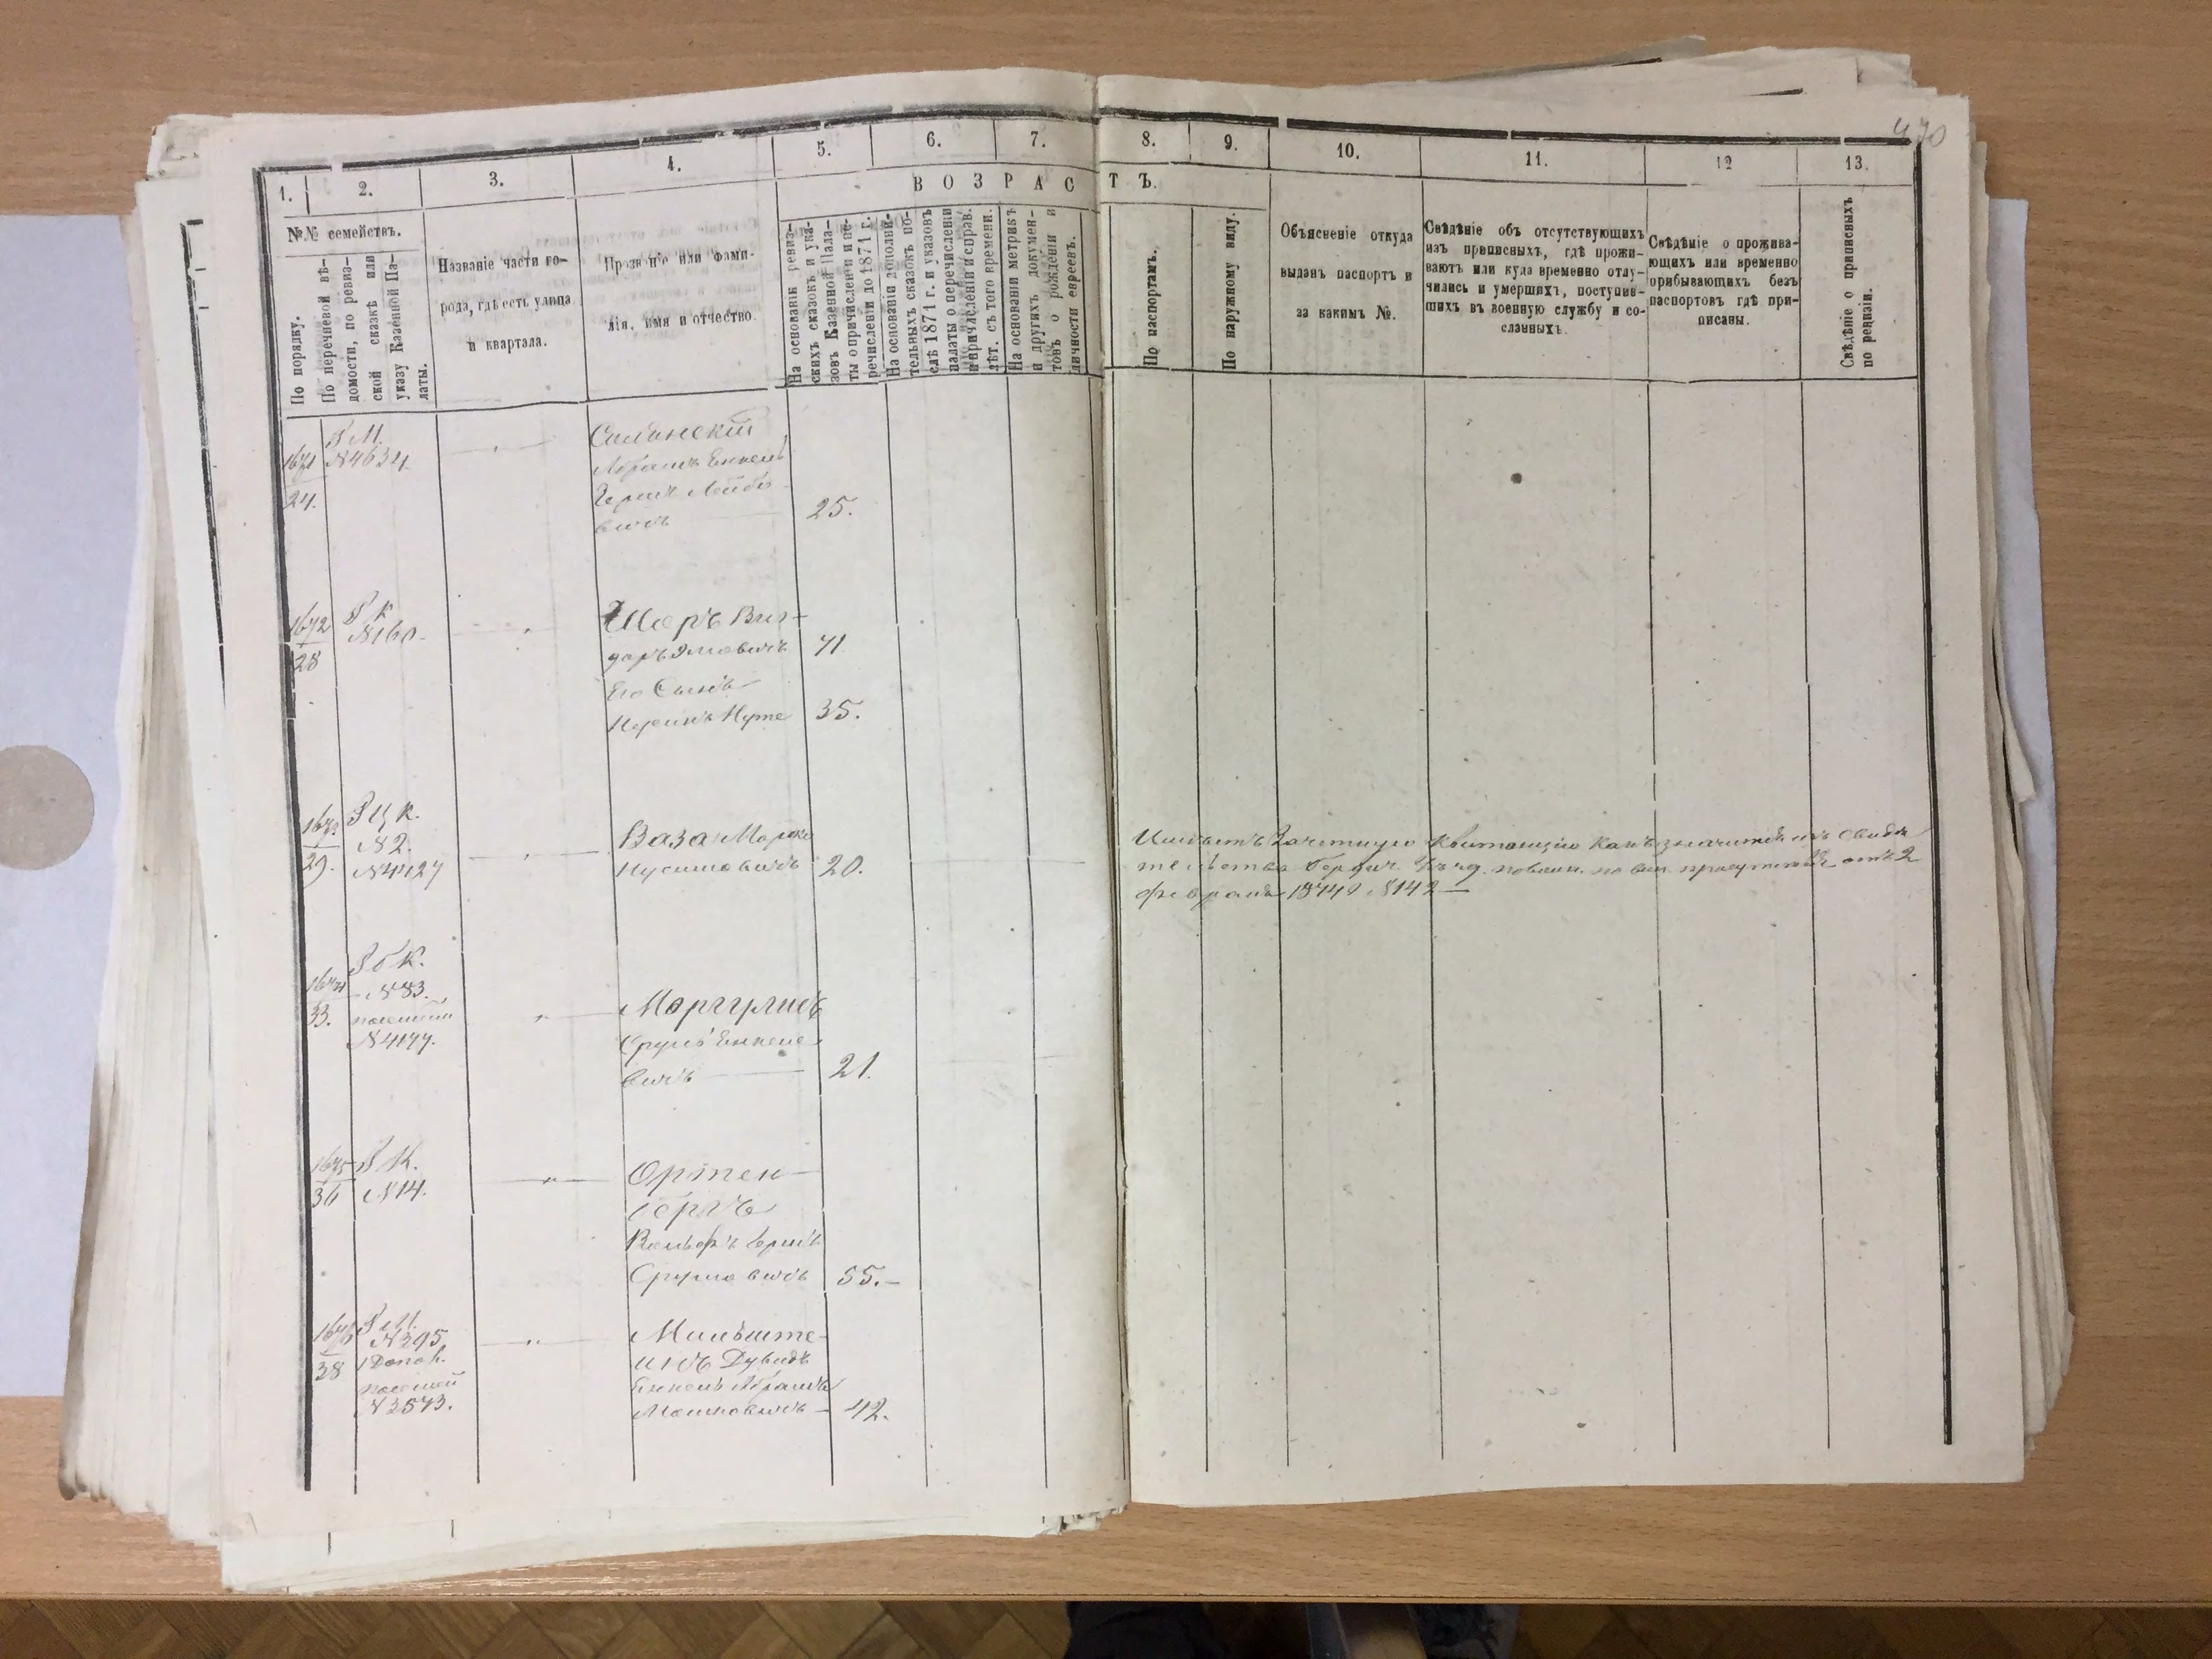 470
1.
2.
3.
4.
5.
6.
7.
8.
9.
10.
11.
12
13.
ВОЗРАСТЪ.
№№ семействъ.
По порядку.
По перечневой вѣ-
домости, по ревиз-
ской сказкѣ или
указу Казенной Па-
латы.
Названіе части го-
рода, гдѣ есть улица
и квартала.
Прозваніе или фами-
лія, имя и отчество.
На основаніи ревиз-
скихъ сказокъ и ука-
зовъ Казенной Пала-
ты о причисленіи и пе-
речисленіи до 1871 г.
На основаніи дополни-
тельныхъ сказокъ по-
слѣ 1871 г. и указовъ
палаты о перечислени
и причисленіи и справ.
лѣт. съ того времени.
На основаніи метрикъ
и другихъ докумен-
товъ о рожденіи и
личности евреевъ.
По паспортамъ.
По наружному виду.
Объясненіе откуда
выданъ паспортъ и
за какимъ №.
Свѣдѣніе объ отсутствующихъ
изъ приписныхъ, гдѣ прожи-
ваютъ или куда временно отлу-
чились и умершихъ, поступив-
шихъ въ военную службу и со-
сланныхъ.
Свѣдѣніе о прожива-
ющихъ или временно
прибывающихъ безъ
паспортовъ гдѣ при-
писаны.
Свѣдѣніе о приписныхъ
по ревизіи.
1671
24.
№4634
Абрамъ Енкель
Гершъ Лейбо-
вичъ
25.
1672
28
№160.
Шоръ Виг-
доръ
71
Его Сынъ
35.
1673
29.
№2.
№4127
Ваза Марко
20.
Имѣетъ Зачетную Квитанцію какъ значится изъ Свидѣ
тельства Бердич.
февраля 1874 №142
1674
33.
№83.
№4177.
Маргулисъ
Срулъ Енкеле
вичъ
21.
1675
36
№14.
Ортен-
бергъ
Вольфъ Гершъ
Сруловичъ
55.
1676
38
№395
№2573.
Мильште-
инъ Дувидъ
Енкель Абрамъ
Мошковичъ
42.